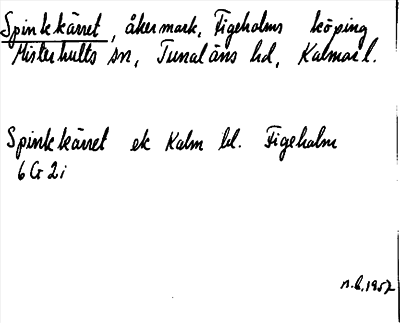 Spinkkärret, åkermark, Figeholms köping
Misterhults sn, Tunaläns hd, Kalmar l.
Spinkkärret ek Kalm bl. Figeholm
6 G 2 i
1957